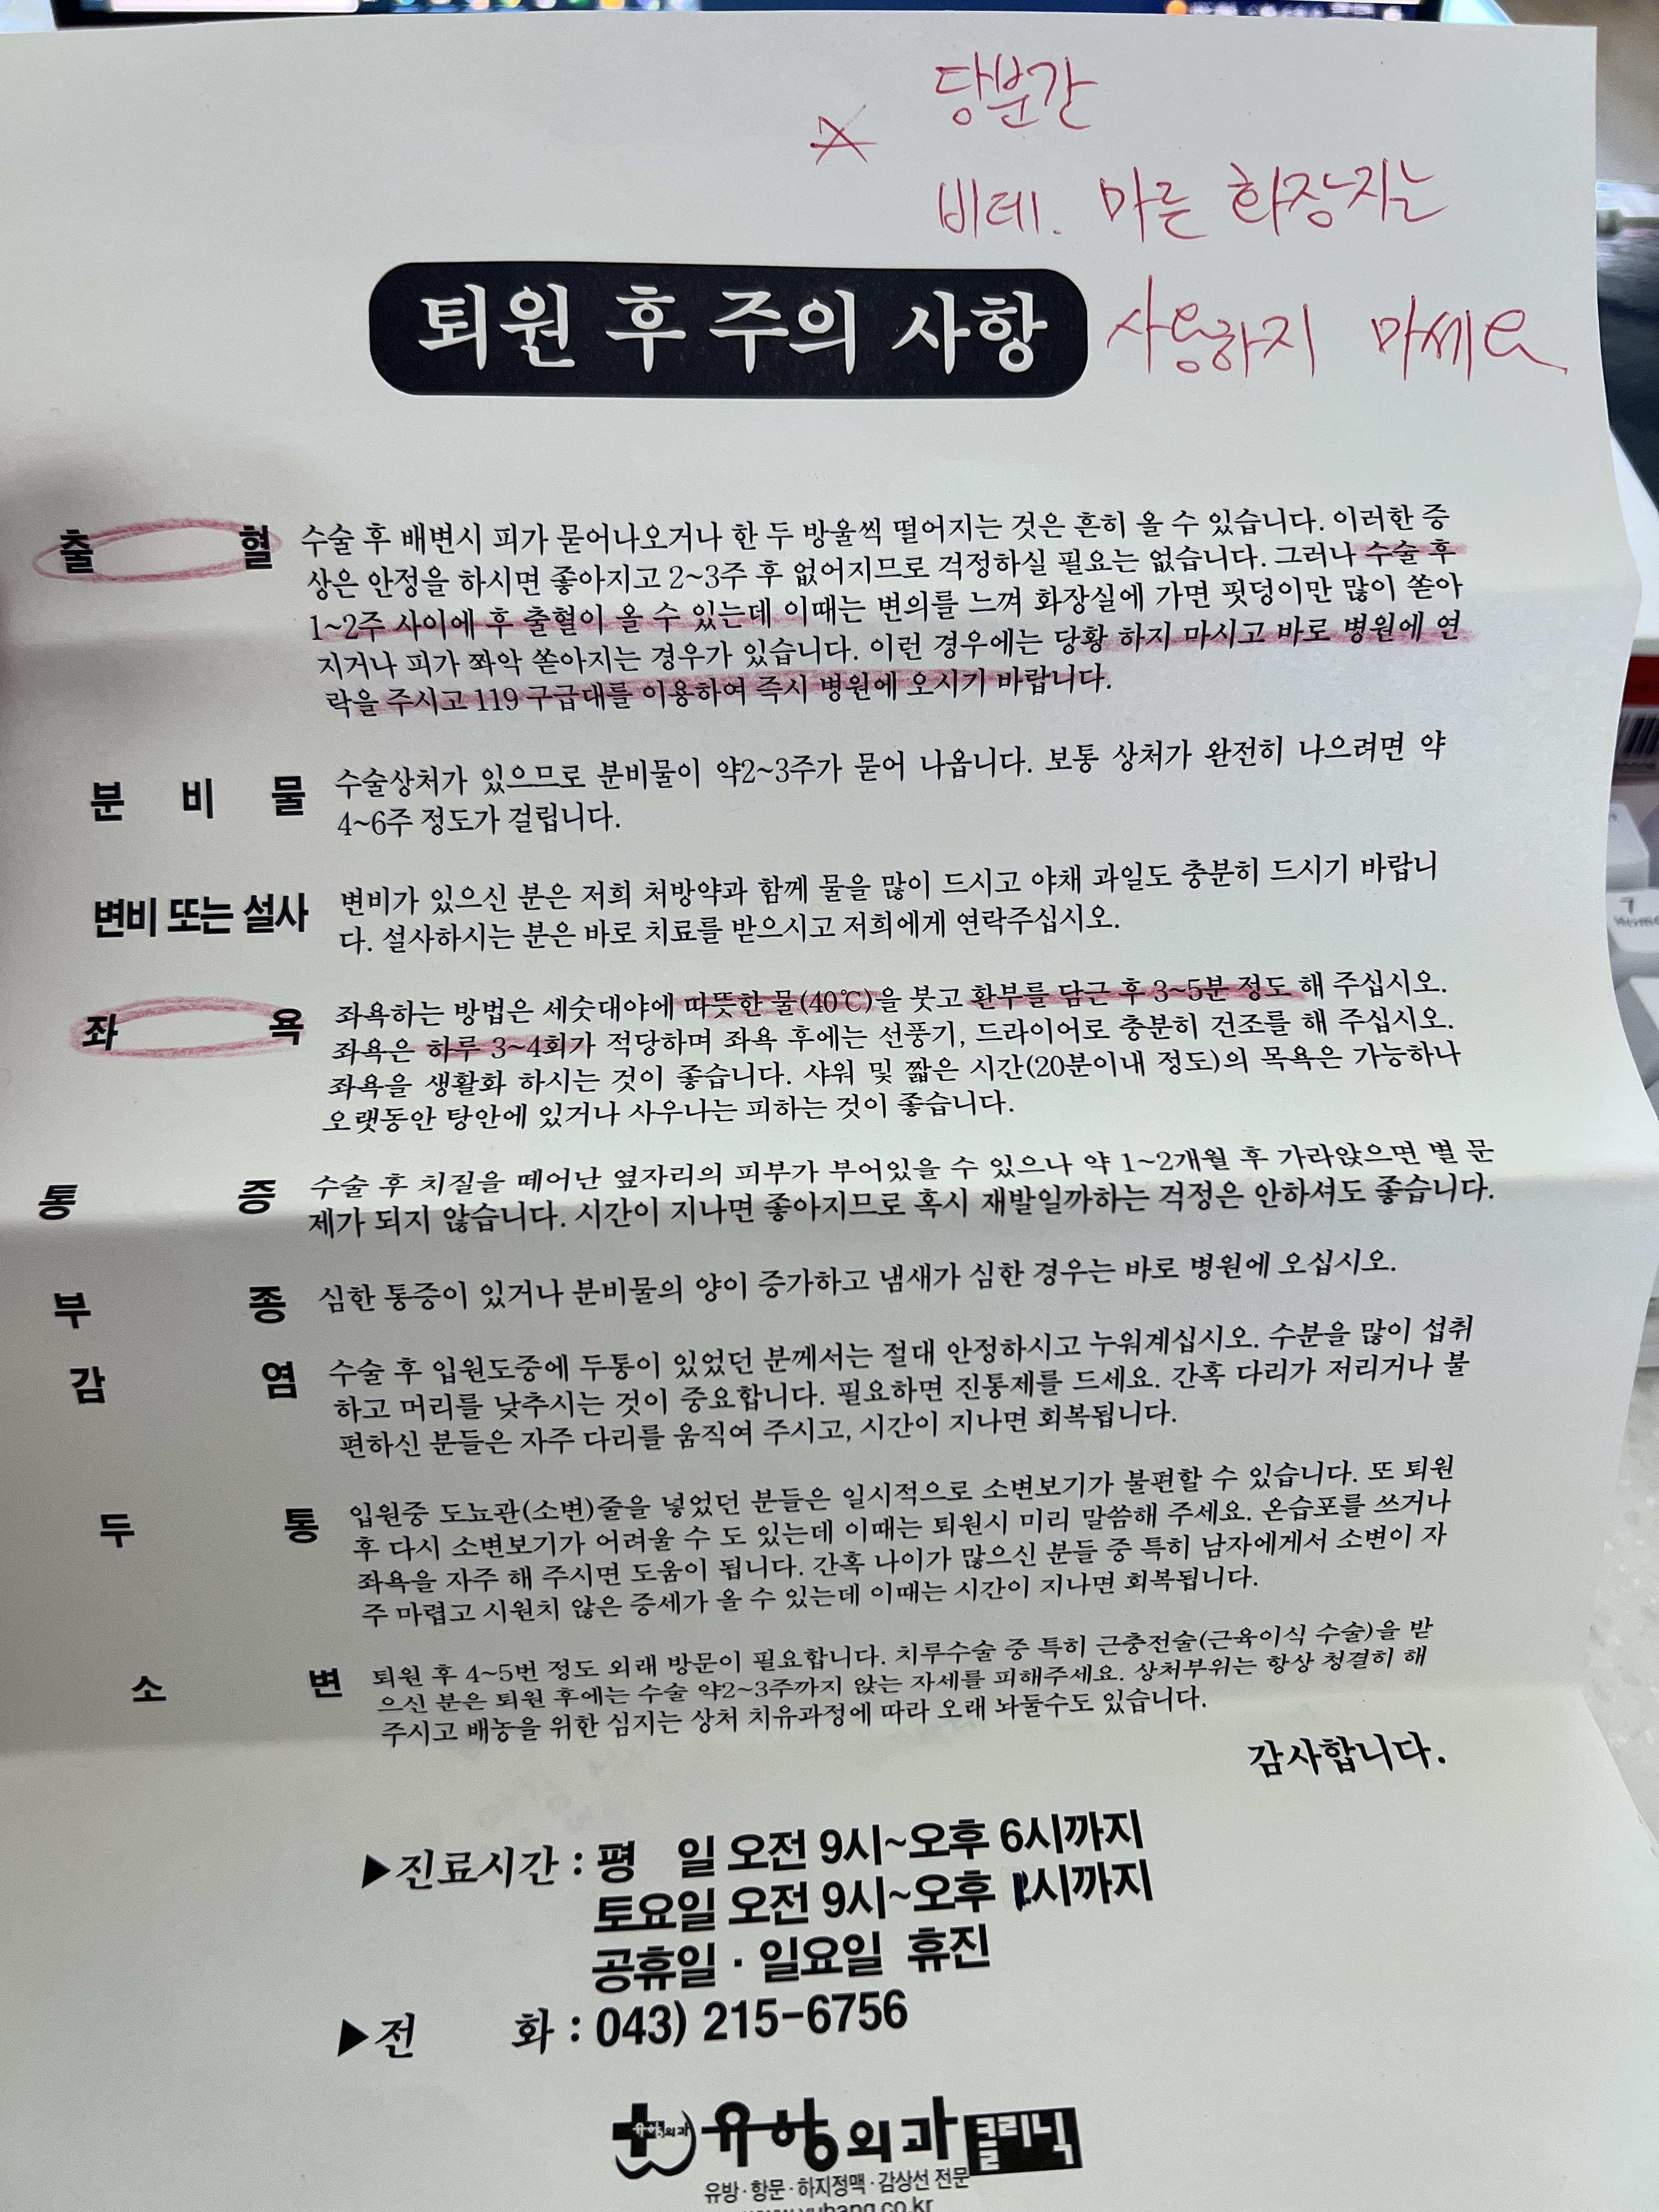 당분간
비데. 마른 화장지는
퇴원 후 주의 사항 사용하지 마세요
출 혈 수술 후 배변시 피가 묻어나오거나 한 두 방울씩 떨어지는 것은 흔히 올 수 있습니다. 이러한 증
상은 안정을 하시면 좋아지고 2~3주 후 없어지므로 걱정하실 필요는 없습니다. 그러나 수술 후
1~2주 사이에 후 출혈이 올 수 있는데 이때는 변의를 느껴 화장실에 가면 핏덩이만 많이 쏟아
지거나 피가 쫘악 쏟아지는 경우가 있습니다. 이런 경우에는 당황 하지 마시고 바로 병원에 연
락을 주시고 119 구급대를 이용하여 즉시 병원에 오시기 바랍니다.
분 비 물 수술상처가 있으므로 분비물이 약2~3주가 묻어 나옵니다. 보통 상처가 완전히 나으려면 약
4~6주 정도가 걸립니다.
변비 또는 설사 변비가 있으신 분은 저희 처방약과 함께 물을 많이 드시고 야채 과일도 충분히 드시기 바랍니
다. 설사하시는 분은 바로 치료를 받으시고 저희에게 연락주십시오.
좌 욕 좌욕하는 방법은 세숫대야에 따뜻한 물(40℃)을 붓고 환부를 담근 후 3~5분 정도 해 주십시오.
좌욕은 하루 3~4회가 적당하며 좌욕 후에는 선풍기, 드라이어로 충분히 건조를 해 주십시오.
좌욕을 생활화 하시는 것이 좋습니다. 샤워 및 짧은 시간(20분이내 정도)의 목욕은 가능하나
오랫동안 탕안에 있거나 사우나는 피하는 것이 좋습니다.
통 증 수술 후 치질을 떼어난 옆자리의 피부가 부어있을 수 있으나 약 1~2개월 후 가라앉으면 별 문
제가 되지 않습니다. 시간이 지나면 좋아지므로 혹시 재발일까하는 걱정은 안하셔도 좋습니다.
부 종 심한 통증이 있거나 분비물의 양이 증가하고 냄새가 심한 경우는 바로 병원에 오십시오.
감 염 수술 후 입원도중에 두통이 있었던 분께서는 절대 안정하시고 누워계십시오. 수분을 많이 섭취
하고 머리를 낮추시는 것이 중요합니다. 필요하면 진통제를 드세요. 간혹 다리가 저리거나 불
편하신 분들은 자주 다리를 움직여 주시고, 시간이 지나면 회복됩니다.
두 통 입원중 도뇨관(소변)줄을 넣었던 분들은 일시적으로 소변보기가 불편할 수 있습니다. 또 퇴원
후 다시 소변보기가 어려울 수 도 있는데 이때는 퇴원시 미리 말씀해 주세요. 온습포를 쓰거나
좌욕을 자주 해 주시면 도움이 됩니다. 간혹 나이가 많으신 분들 중 특히 남자에게서 소변이 자
주 마렵고 시원치 않은 증세가 올 수 있는데 이때는 시간이 지나면 회복됩니다.
소 변 퇴원 후 4~5번 정도 외래 방문이 필요합니다. 치루수술 중 특히 근충전술(근육이식 수술)을 받
으신 분은 퇴원 후에는 수술 약2~3주까지 앉는 자세를 피해주세요. 상처부위는 항상 청결히 해
주시고 배농을 위한 심지는 상처 치유과정에 따라 오래 놔둘수도 있습니다.
감사합니다.
▶진료시간 : 평 일 오전 9시~오후 6시까지
토요일 오전 9시~오후 1시까지
공휴일 · 일요일 휴진
▶전 화 : 043) 215-6756
유항외과 클리닉
유방·항문·하지정맥·감상선 전문